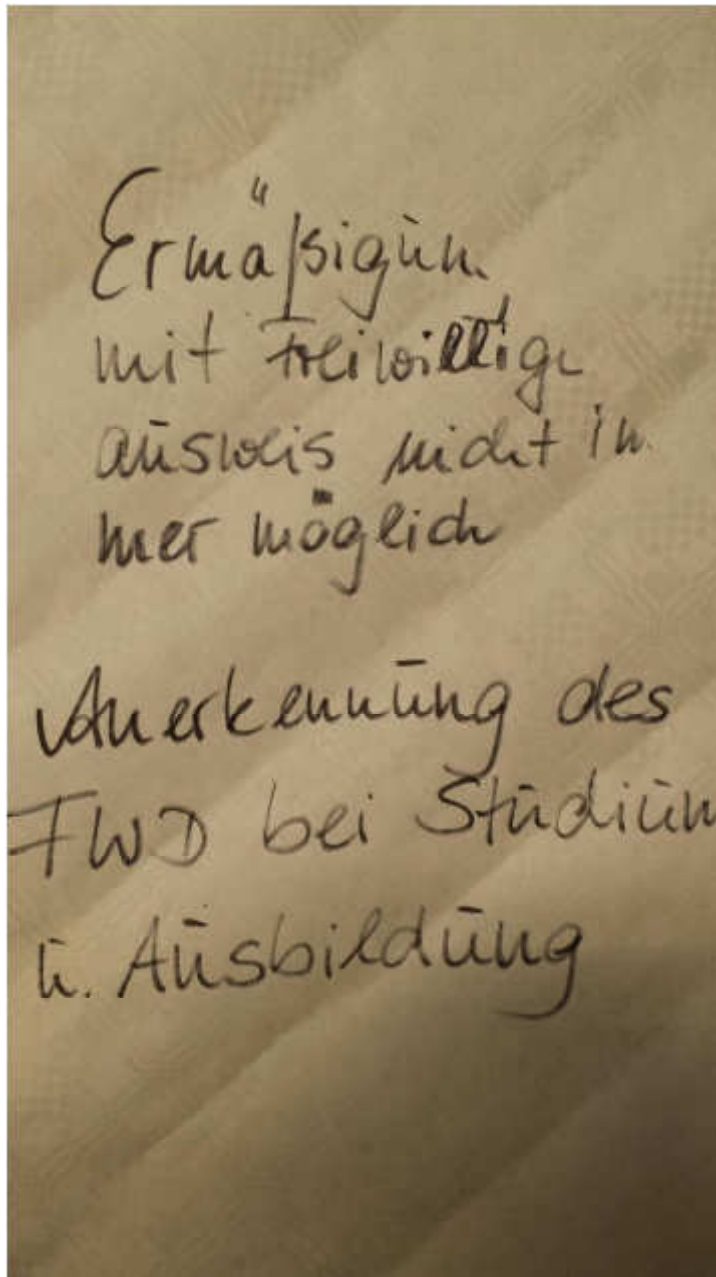 Ermäßigun.
mit Freiwillige
ausweis nicht im
mer möglich
Anerkennung des
FWD bei Studium
u. Ausbildung